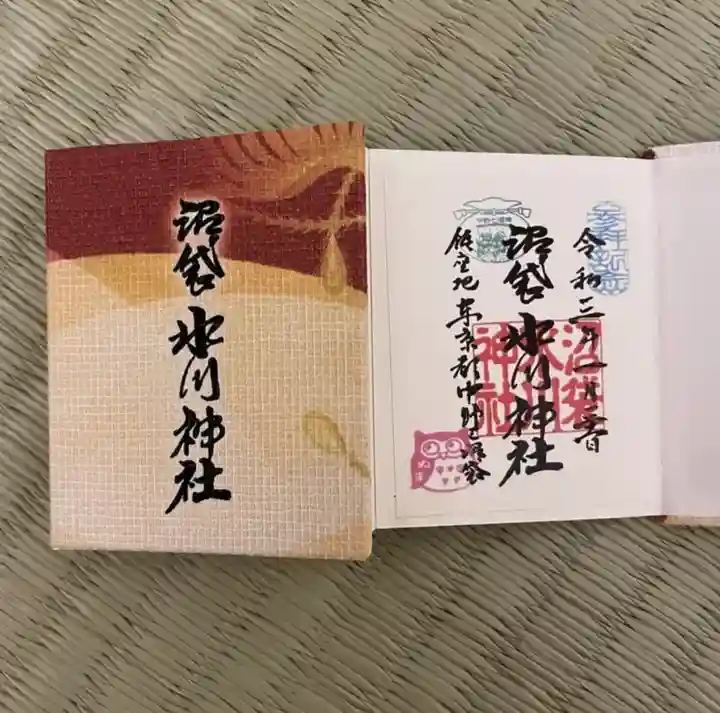 沼袋氷川神社
令和三年一月三日
沼袋氷川神社
鎮座地東京都中野区沼袋
沼袋氷川神社
参拝記念